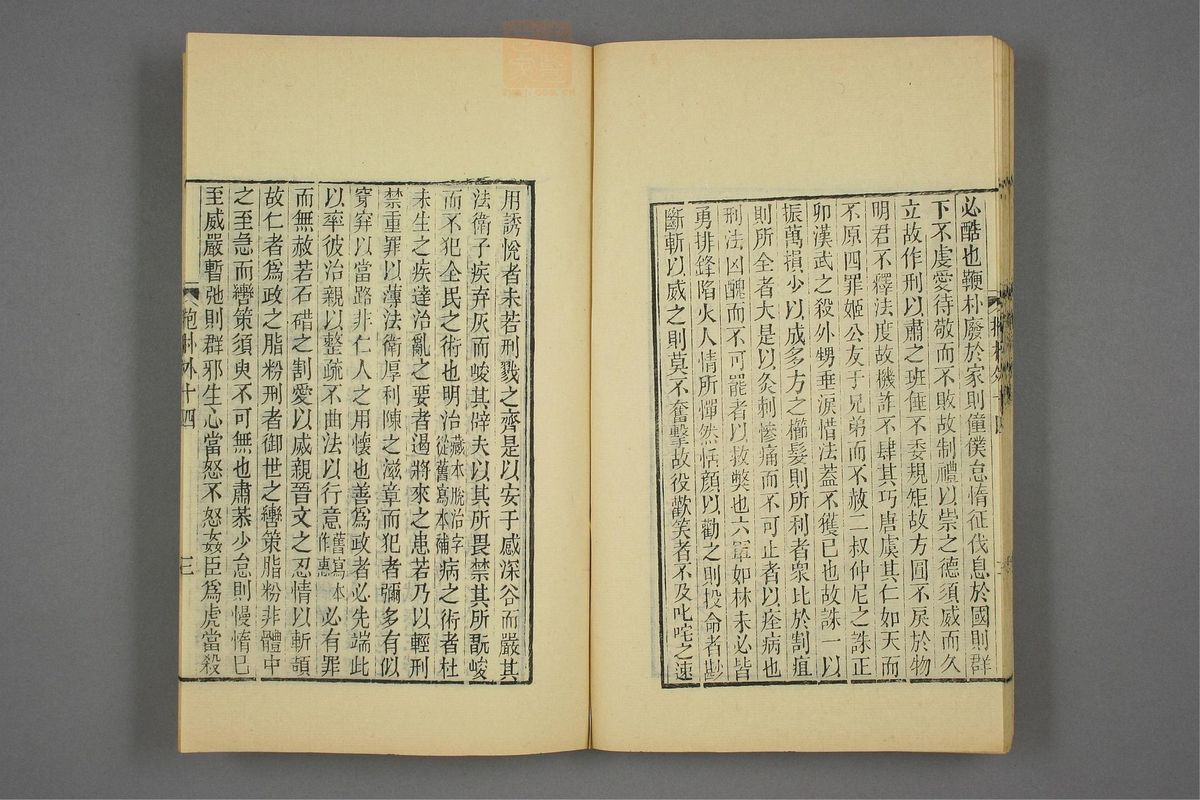 必酷也鞭朴廢於家則僮僕怠惰征伐息於國則群
下不虔愛待敬而不敗故制禮以崇之德須威而久
立故作刑以肅之班倕不委規矩故方圓不戾於物
明君不釋法度故機詐不肆其巧唐虞其仁如天而
不原四罪姬公友于兄弟而不赦二叔仲尼之誅正
卯漢武之殺外甥垂淚惜法蓋不獲已也故誅一以
振萬損少以成多方之櫛髮則所利者衆比於割疽
則所全者大是以灸刺慘痛而不可止者以痊病也
刑法凶醜而不可罷者以救弊也六軍如林未必皆
勇排鋒陷火人情所憚然恬顔以勸之則投命者尠
斷斬以威之則莫不奮擊故役歡笑者不及叱咤之速
用誘悅者未若刑戮之齊是以安于感深谷而嚴其
法衛子疾弃灰而峻其辟夫以其所畏禁其所翫峻
而不犯全民之術也明治藏本脫治字從舊寫本補病之術者杜
未生之疾達治亂之要者遏將來之患若乃以輕刑
禁重罪以薄法衛厚利陳之滋章而犯者彌多有似
穿穽以當路非仁人之用懷也善爲政者必先端此
以率彼治親以整疏不曲法以行意舊寫本作惠必有罪
而無赦若石碏之割愛以威親晉文之忍情以斬頡
故仁者爲政之脂粉刑者御世之轡策脂粉非體中
之至急而轡策須臾不可無也肅恭少怠則慢惰已
至威嚴暫弛則群邪生心當怒不怒姦臣爲虎當殺
抱朴外十四
三